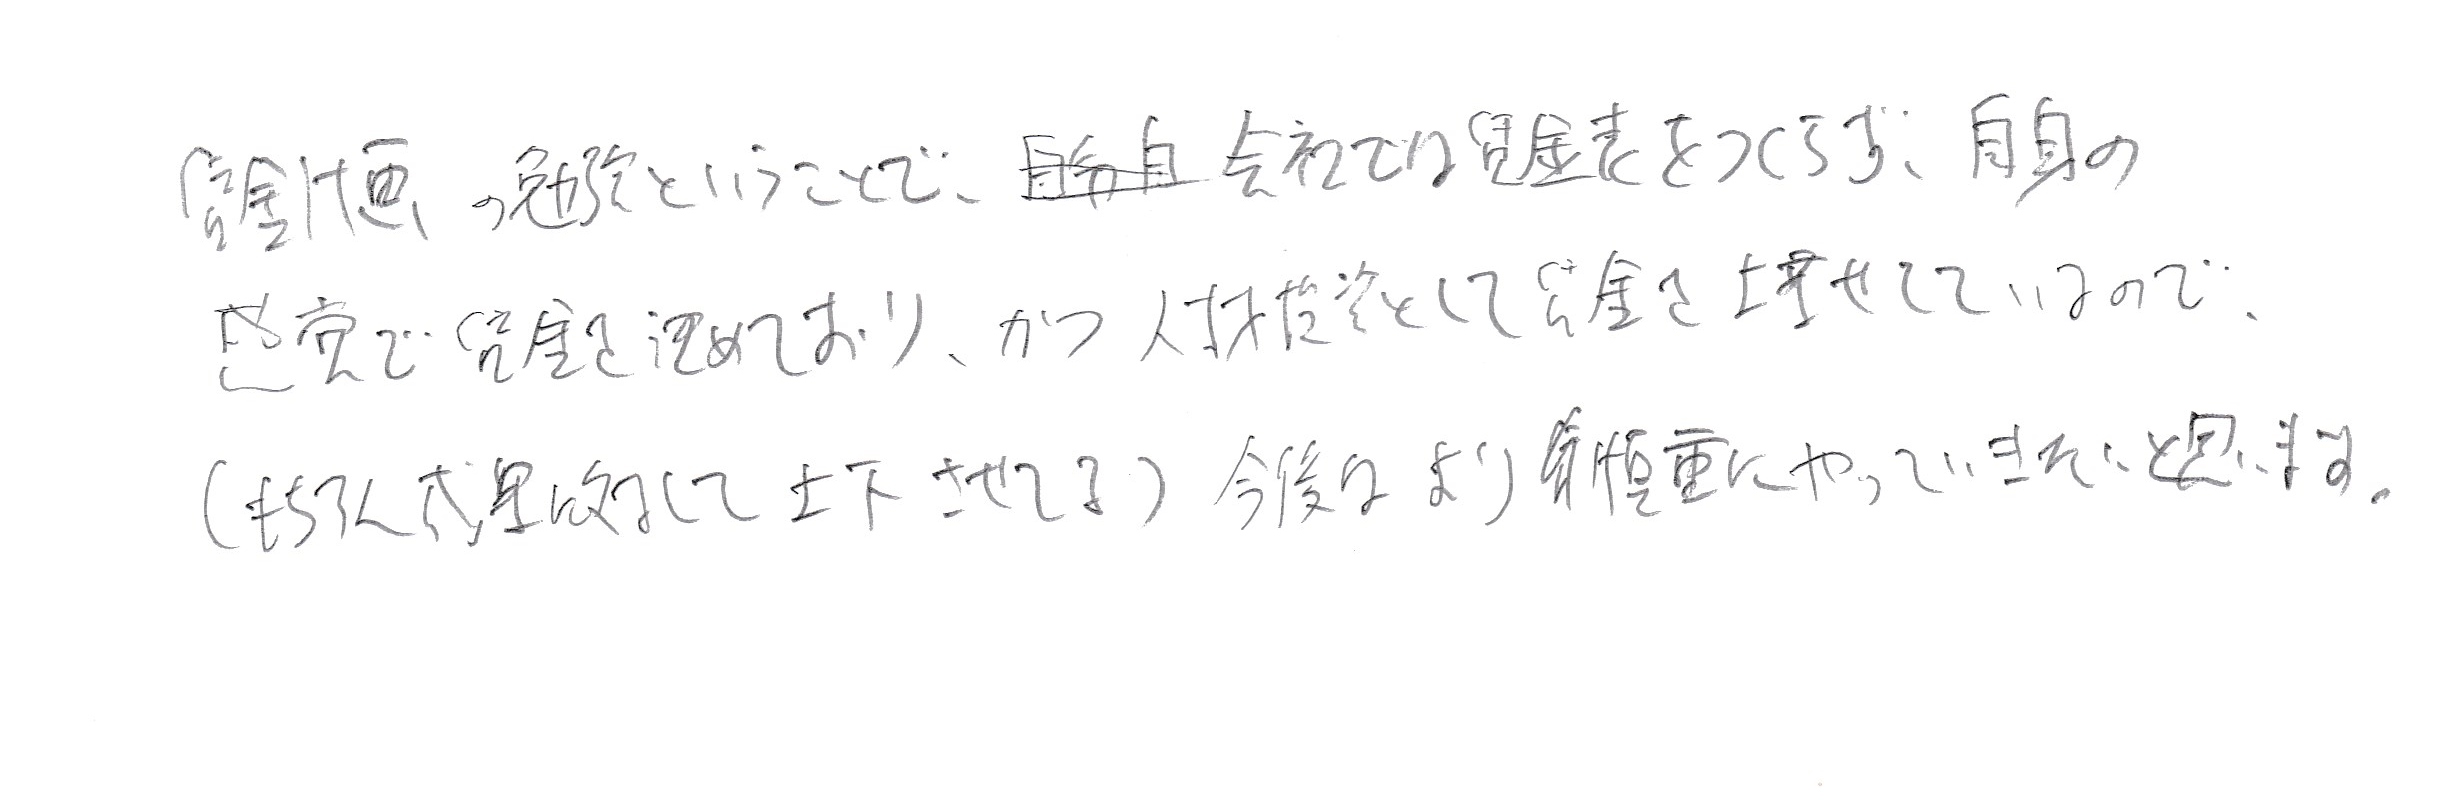 賃金計画の勉強ということで、会社では賃金表をつくらず、自身の
感覚で賃金を決めており、かつ人材投資として賃金を上昇せてているので、
(もちろん成果に対して上下させてる)今後はより慎重にやっていきたいと思います。